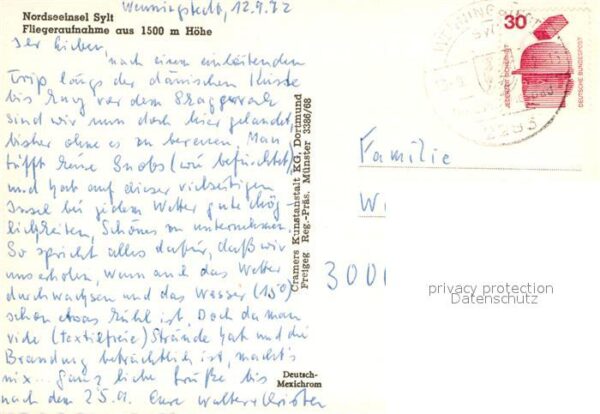 Wenningstedt, 12.9.72
Nordseeinsel Sylt
Fliegeraufnahme aus 1500 m Höhe
Ihr Lieben,
nach einem einleitenden
Trip längs der dänischen Küste
bis kurz vor dem Skagerrak
sind wir nun doch hier gelandet,
bisher ohne es zu bereuen. Man
trifft keine Snobs (wie befürchtet)
und hat auf dieser vielseitigen
Insel bei jedem Wetter gute Mög-
lichkeiten, Schönes zu unternehmen.
So spricht alles dafür, daß wir
uns erholen, wenn auch das Wetter
durchwachsen und das Wasser (15°)
schon etwas kühl ist. Doch da man
viele (textilfreie) Strände hat und die
Brandung beträchtlich ist, macht's
nix... Ganz liebe Grüße bis
nach dem 25.9. Eure
Cramers Kunstanstalt KG, Dortmund
Freigeg Reg.-Präs. Münster 3386/68
Deutsch-
Mexichrom
30
JEDERZEIT SICHERHEIT
DEUTSCHE BUNDESPOST
2283
Familie
W
3000
privacy protection
Datenschutz